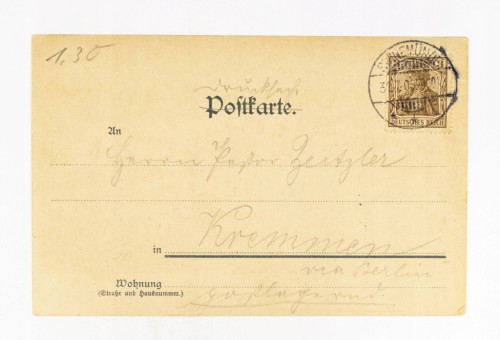 1,30
SWINEMÜNDE
DEUTSCHES REICH
Drucksache
Postkarte.
An
Herrn Pastor Zeitzler
Kremmen
in
via Berlin
Wohnung
(Straße und Hausnummer.)
postlagernd.